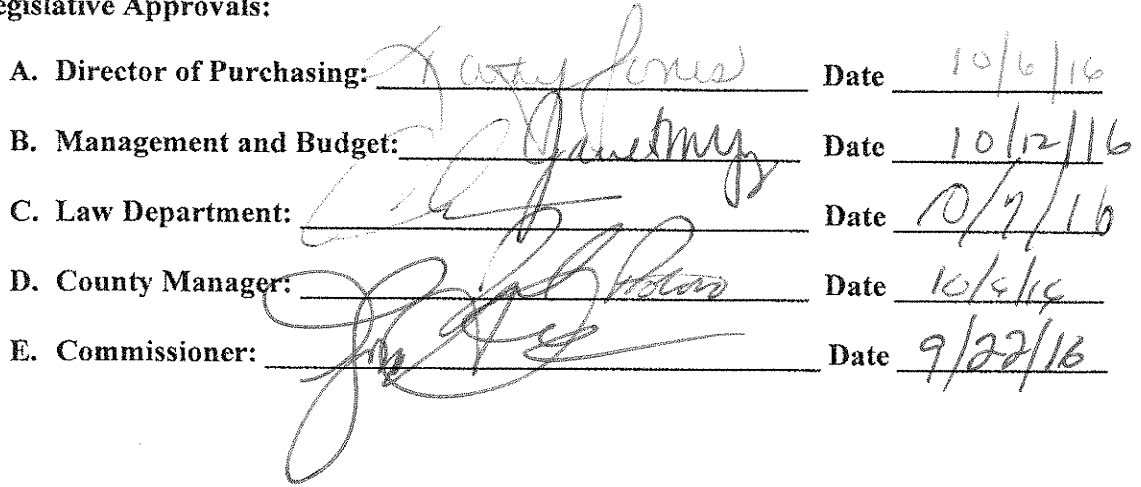 egislative Approvals:
A. Director of Purchasing: Jones Date 10/6/16
B. Management and Budget: Date 10/12/16
C. Law Department: Date 10/7/16
D. County Manager: Date
E. Commissioner: Date 9/22/16